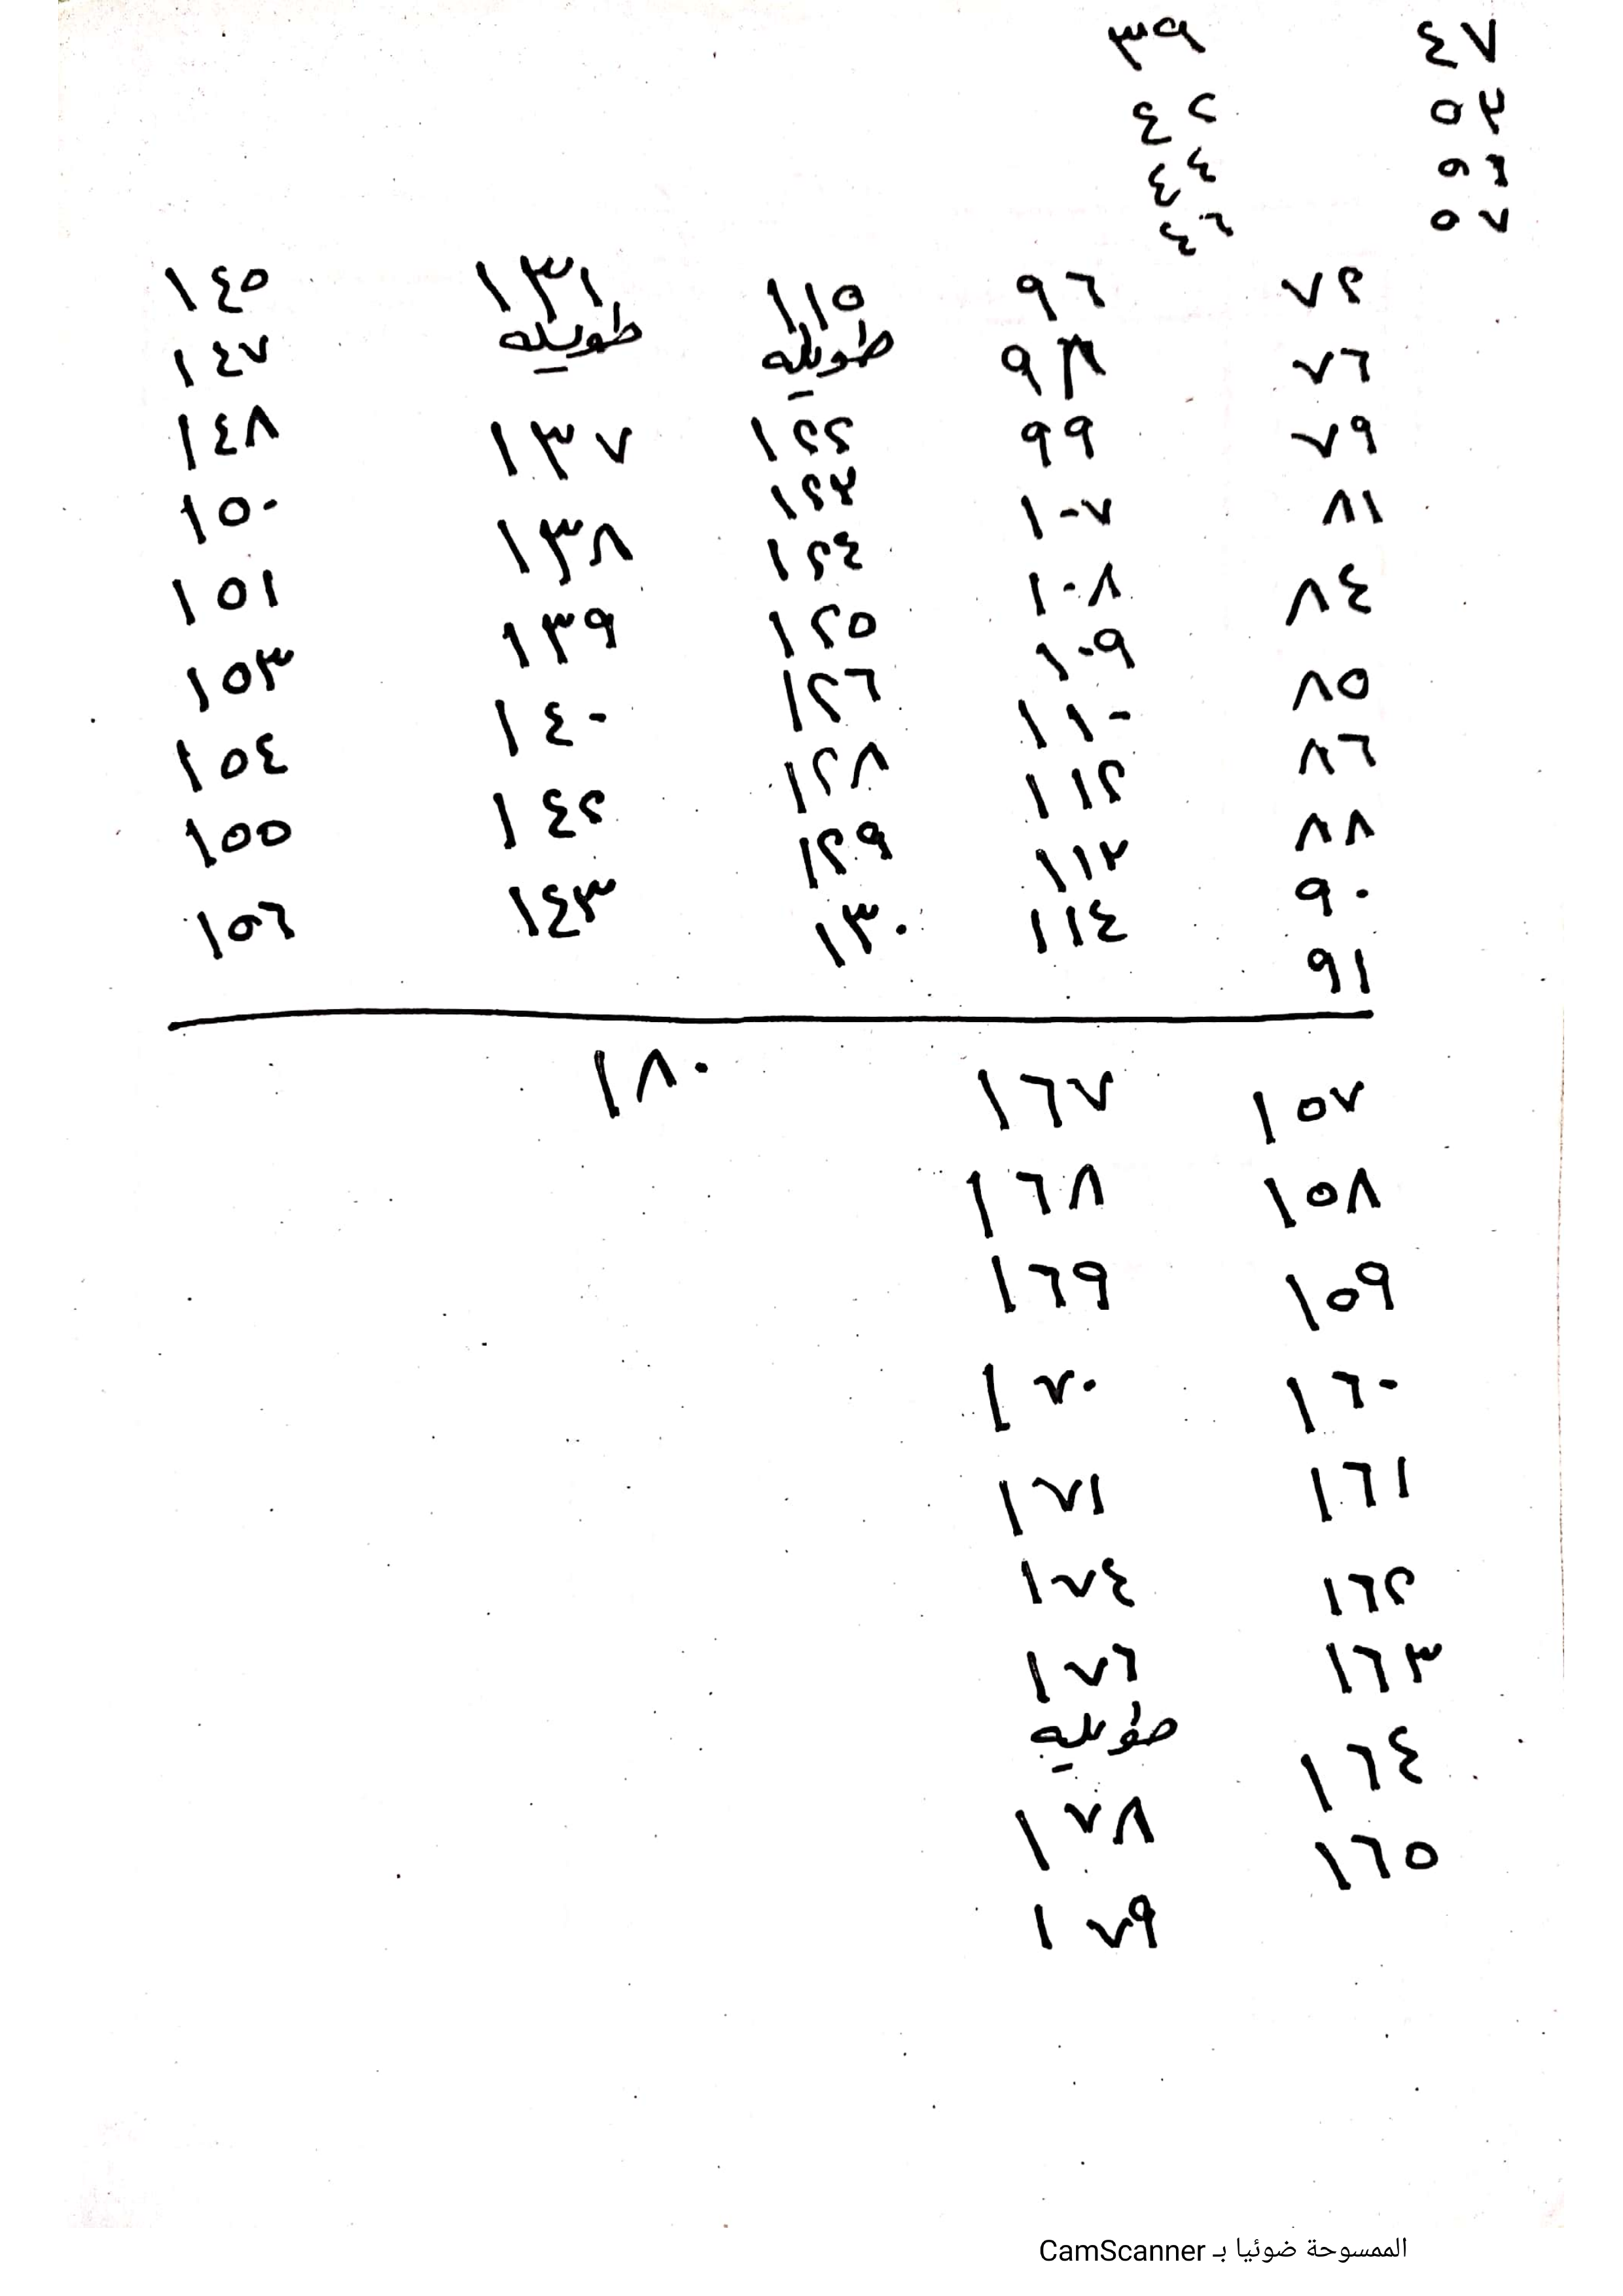 ٤٧
٥٣
٥٦
٥٧
٣٩
٤٢
٤٤
٤٦
٧٢
٧٦
٧٩
٨١
٨٤
٨٥
٨٦
٨٨
٩٠
٩١
٩٦
٩٨
٩٩
١٠٧
١٠٨
١٠٩
١١٠
١١٢
١١٣
١١٤
١١٥
طويله
١٢٢
١٢٣
١٢٤
١٢٥
١٢٦
١٢٨
١٢٩
١٣٠
١٣١
طويله
١٣٧
١٣٨
١٣٩
١٤٠
١٤٢
١٤٣
١٤٥
١٤٧
١٤٨
١٥٠
١٥١
١٥٣
١٥٤
١٥٥
١٥٦
١٥٧
١٥٨
١٥٩
١٦٠
١٦١
١٦٢
١٦٣
١٦٤
١٦٥
١٦٧
١٦٨
١٦٩
١٧٠
١٧١
١٧٤
١٧٦
طويله
١٧٨
١٧٩
١٨٠
الممسوحة ضوئيا بـ CamScanner